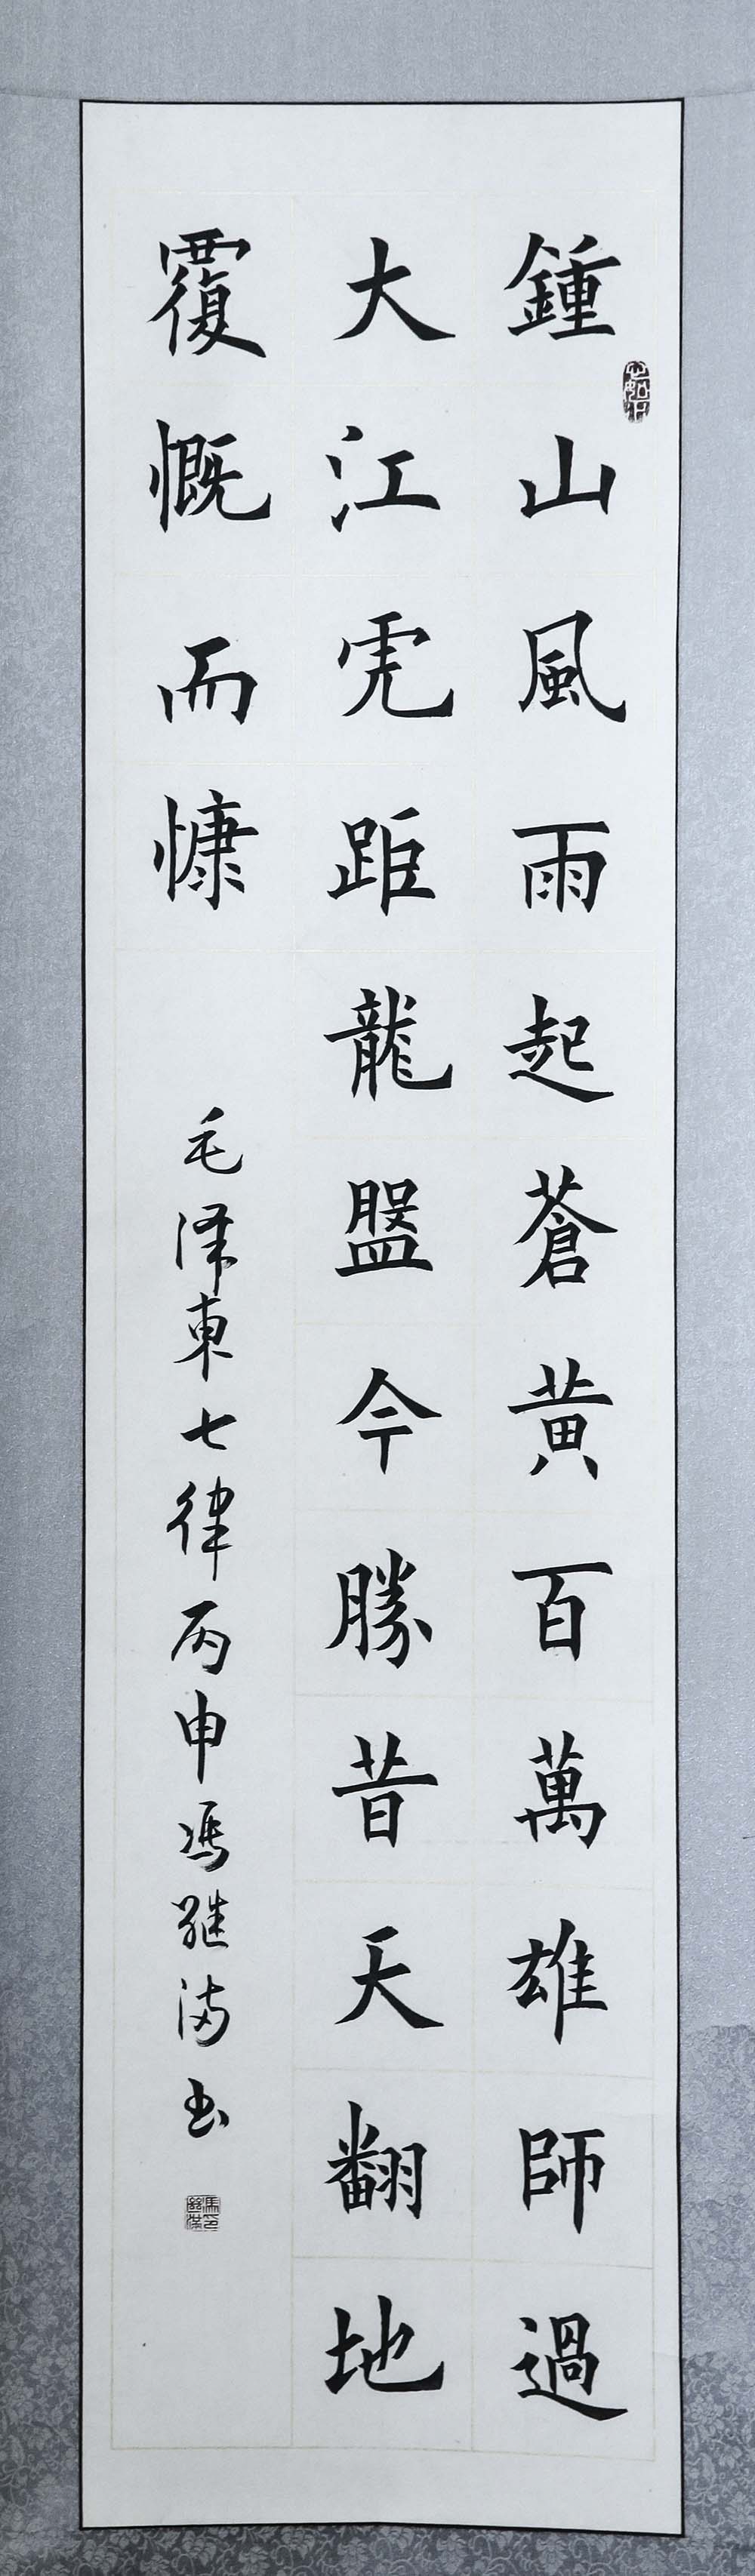 鍾山風雨起蒼黄百萬雄師過
大江虎距龍盤今勝昔天翻地
覆慨而慷
毛泽東七律丙申馮继满书